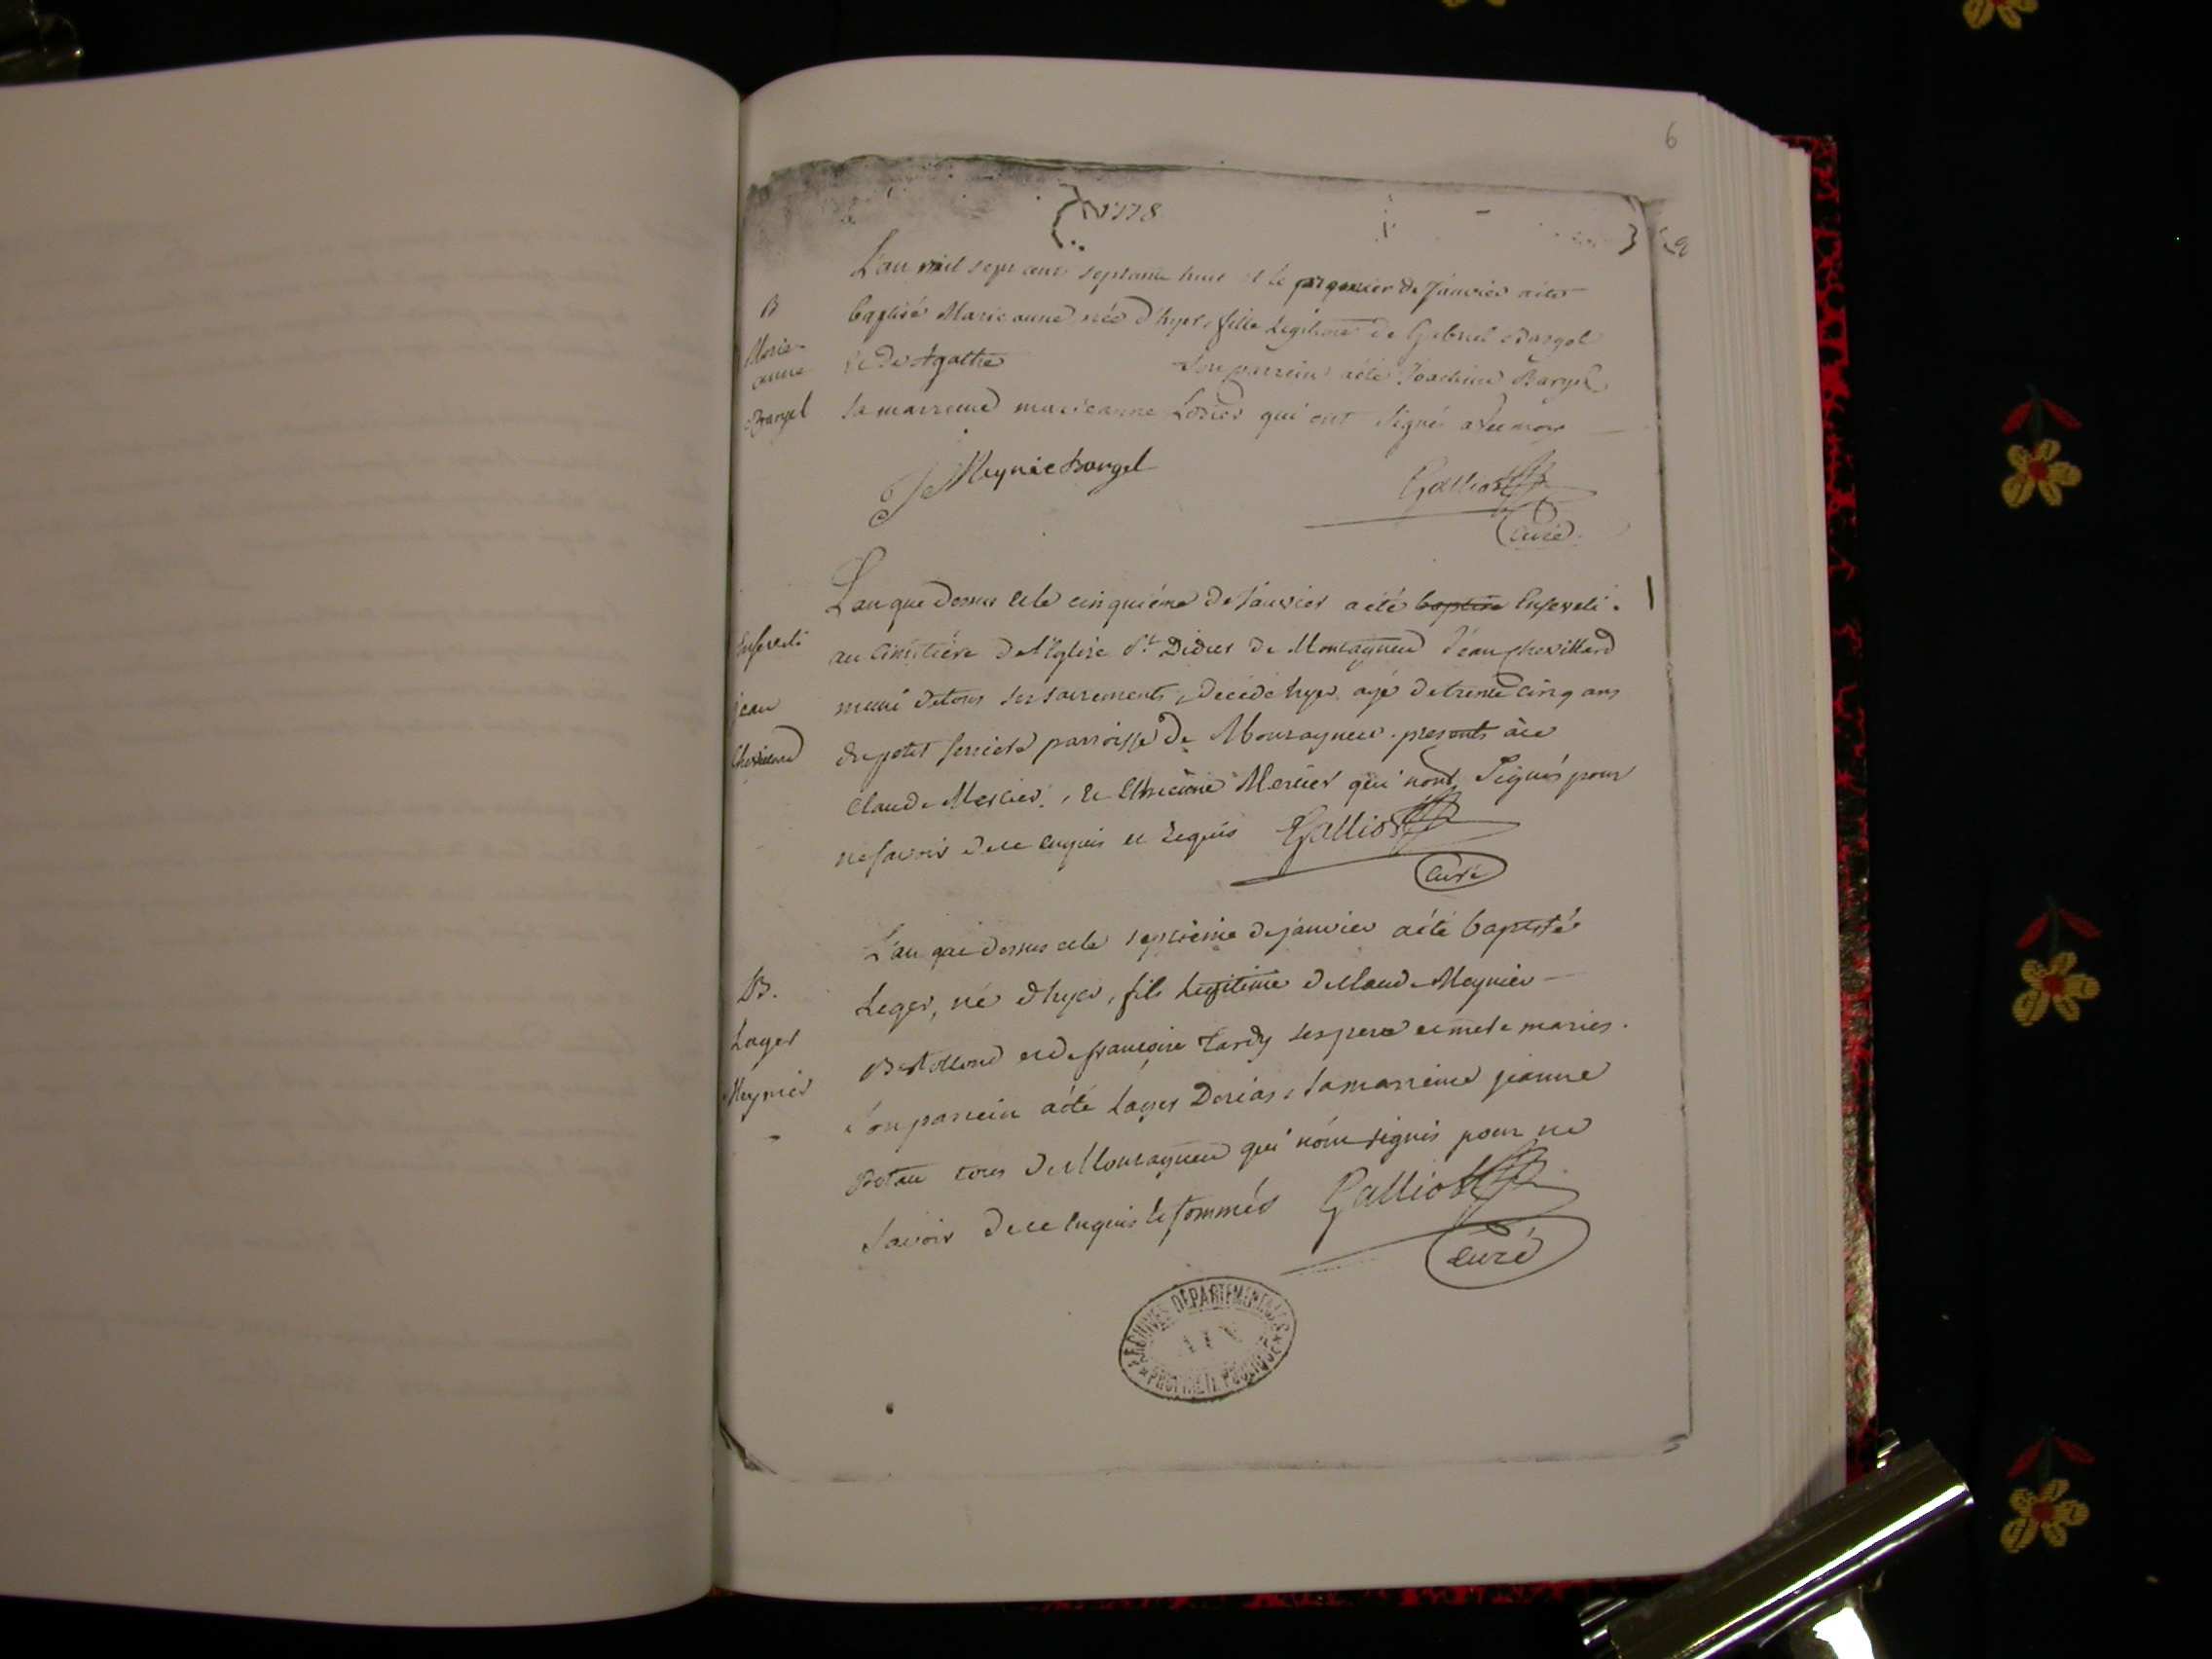 6
1778
L'an mil sept cent septante huit et le premier de Janvier a été
B
baptisé Marie anne née d'hyer, fille Legitime de Gabriel Bargel
Marie
anne
et de Agathe son parrein a été Joachim Bargel
Bargel
sa marreine marieanne qui ont signé avec moy
Meynie Bargel
Galliost
Curé
L'an que dessus et le cinquiéme de Janvier a été baptisé Enseveli
Enseveli
au Cimitiére de l'Eglise St Didier de Montagneu Jéan Chevillard
jean
muni de tous ses sacrements, décédé hyer agé de trente cinq ans
Chevillard
du petit parroisse de Montagneu. presents à ce
Claude Mercier, et Mercier qui n'ont Signés pour
ne savoir de ce enquis et requis Galliost
Curé
L'an que dessus et le septiéme de janvier a été baptisé
B.
Leger, né d'hyer, fils legitime de Claude Meynier
Lager
et de françoise Tardy ses pere et mere mariés.
Meynier
Son parrein a été Lager Dorias, sa marreine jeanne
tous de Montagneu qui n'ont signés pour ne
savoir de ce enquis et sommés Galliost
Curé
ARCHIVES DEPARTEMENTALES
AIN
PROPRIETE PUBLIQUE